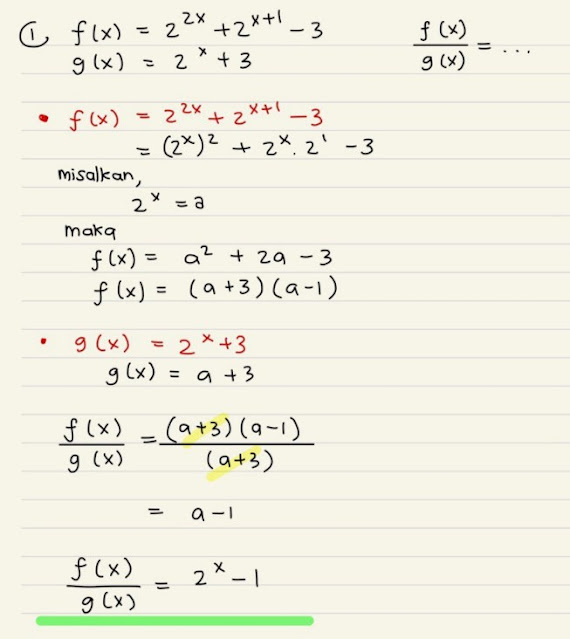 ① f(x) = 2^{2x} + 2^{x+1} - 3
g(x) = 2^x + 3
f(x) / g(x) = ...
• f(x) = 2^{2x} + 2^{x+1} - 3
= (2^x)^2 + 2^x . 2^1 - 3
misalkan,
2^x = a
maka
f(x) = a^2 + 2a - 3
f(x) = (a+3)(a-1)
• g(x) = 2^x + 3
g(x) = a + 3
f(x) / g(x) = (a+3)(a-1) / (a+3)
= a - 1
f(x) / g(x) = 2^x - 1